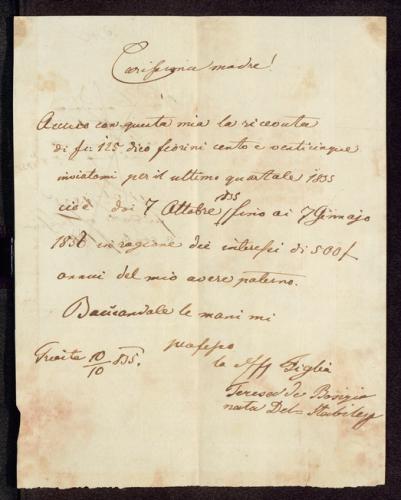 Carissima madre!
Accuso con questa mia la ricevuta
di fn: 125 dico fiorini cento e venticinque
inviatomi per il ultimo quartale 1835
cioè dai 7 Ottobre 835 fino ai 7 Gennajo
1836 in ragione dei interessi di 500 f
annui del mio avere paterno.
Bacciandole le mani mi
professo
la Aff Figlia
Trieste 10/10 835.
Teresa de
nata Del